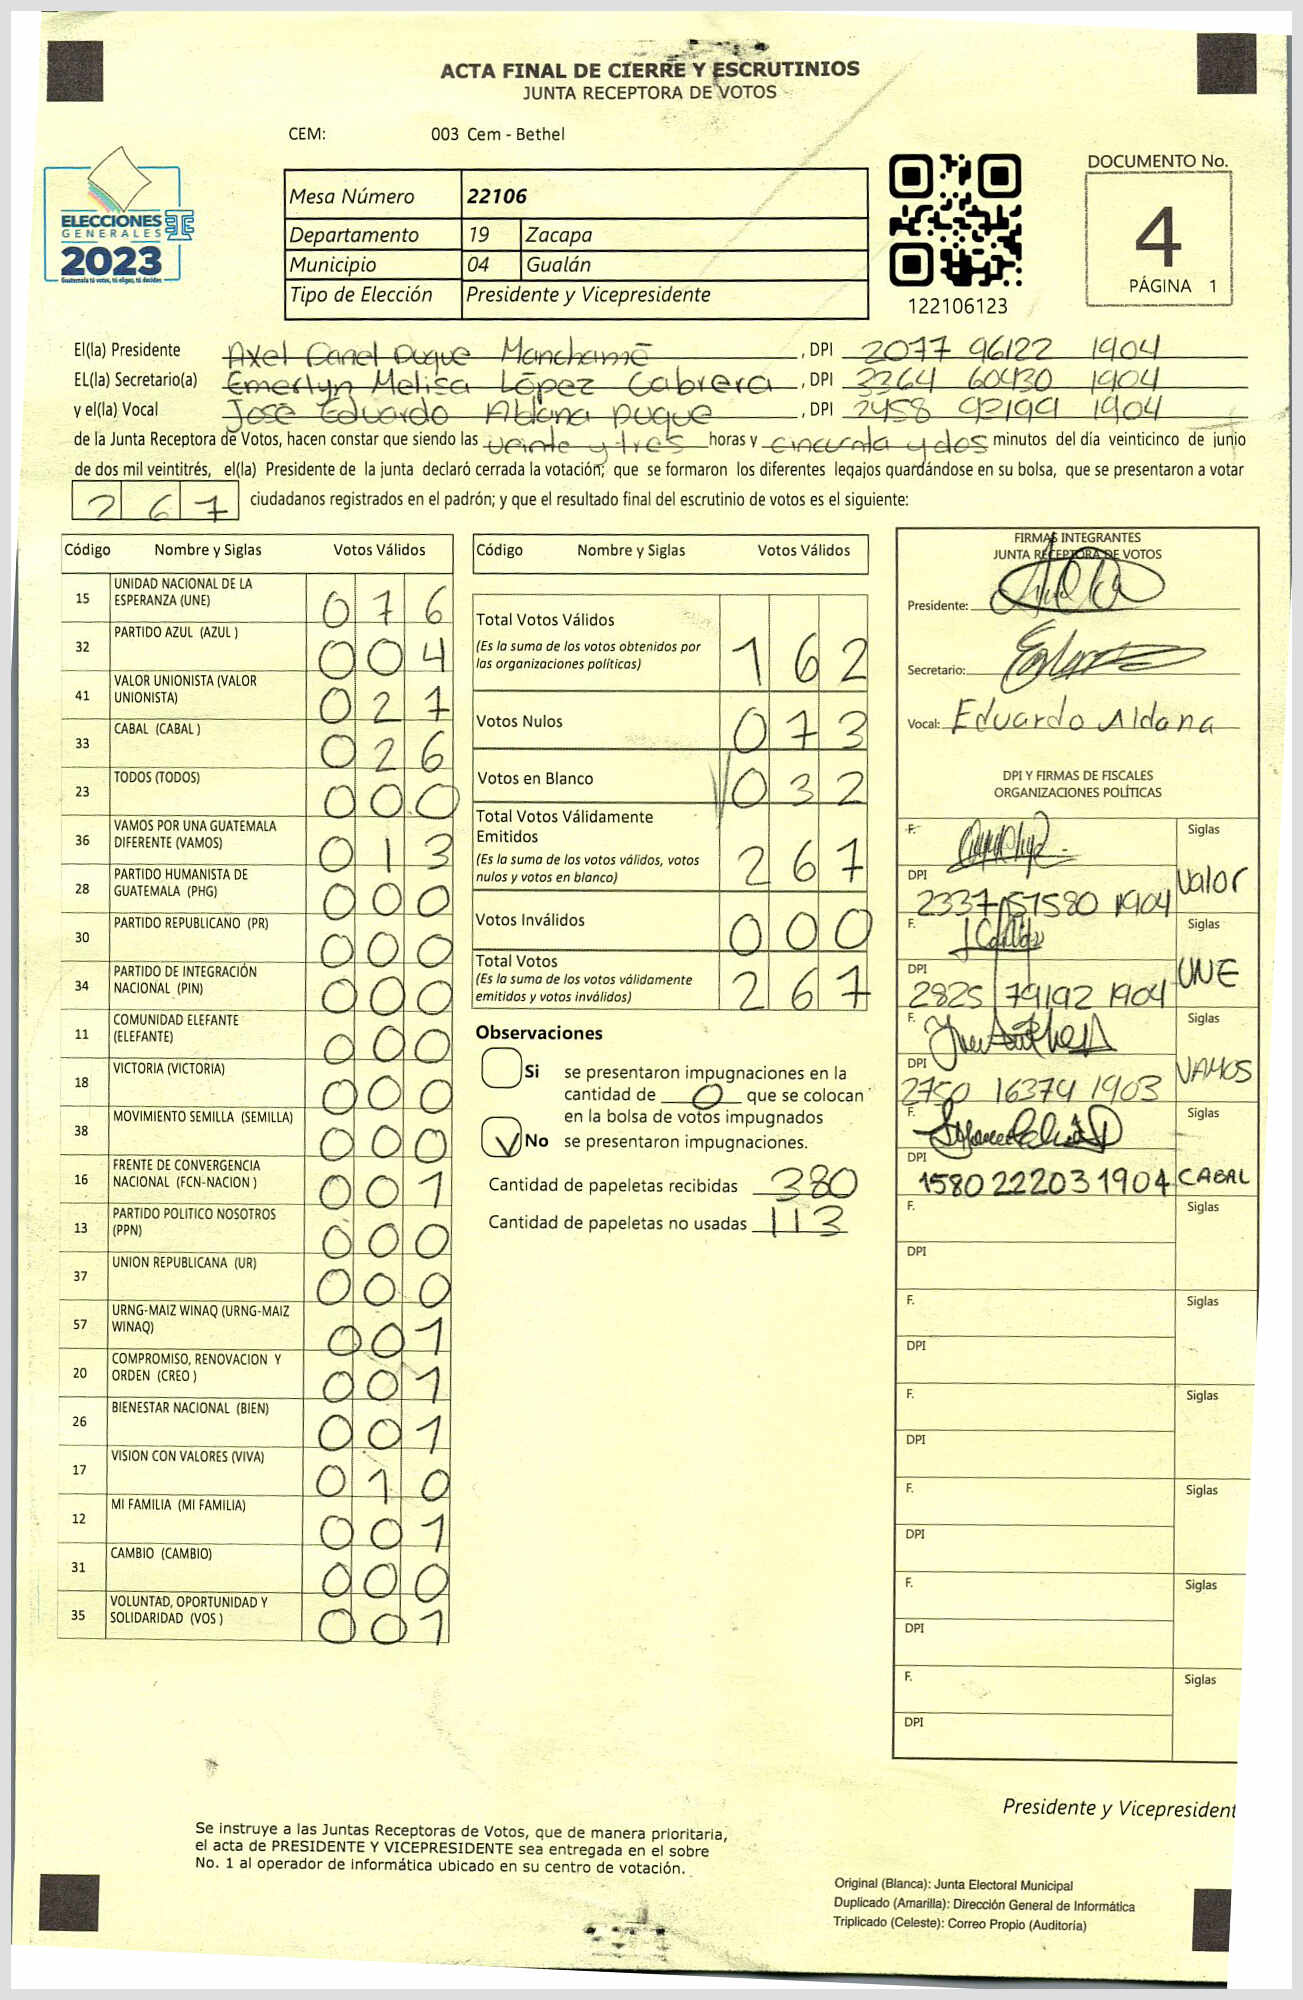 ACTA FINAL DE CIERRE Y ESCRUTINIOS
JUNTA RECEPTORA DE VOTOS
CEM: 003 Cem - Bethel
ELECCIONES
GENERALES
2023
Guatemala tú votas, tú eliges, tú decides
Mesa Número 22106
Departamento 19 Zacapa
Municipio 04 Gualán
Tipo de Elección Presidente y Vicepresidente
122106123
DOCUMENTO No.
4
PÁGINA 1
El(la) Presidente Axel Danel Duque Manchamé, DPI 2077 96122 1904
EL(la) Secretario(a) Emerlyn Melisa López Cabrera, DPI 3364 60430 1904
y el(la) Vocal José Eduardo Aldana Duque, DPI 2458 92199 1904
de la Junta Receptora de Votos, hacen constar que siendo las veinte y tres horas y cincuenta y dos minutos del día veinticinco de junio
de dos mil veintitrés, el(la) Presidente de la junta declaró cerrada la votación; que se formaron los diferentes legajos guardándose en su bolsa, que se presentaron a votar
267 ciudadanos registrados en el padrón; y que el resultado final del escrutinio de votos es el siguiente:
Código Nombre y Siglas Votos Válidos
15 UNIDAD NACIONAL DE LA ESPERANZA (UNE) 076
32 PARTIDO AZUL (AZUL ) 004
41 VALOR UNIONISTA (VALOR UNIONISTA) 027
33 CABAL (CABAL ) 026
23 TODOS (TODOS) 000
36 VAMOS POR UNA GUATEMALA DIFERENTE (VAMOS) 013
28 PARTIDO HUMANISTA DE GUATEMALA (PHG) 000
30 PARTIDO REPUBLICANO (PR) 000
34 PARTIDO DE INTEGRACIÓN NACIONAL (PIN) 000
11 COMUNIDAD ELEFANTE (ELEFANTE) 000
18 VICTORIA (VICTORIA) 000
38 MOVIMIENTO SEMILLA (SEMILLA) 000
16 FRENTE DE CONVERGENCIA NACIONAL (FCN-NACION ) 001
13 PARTIDO POLITICO NOSOTROS (PPN) 000
37 UNION REPUBLICANA (UR) 000
57 URNG-MAIZ WINAQ (URNG-MAIZ WINAQ) 001
20 COMPROMISO, RENOVACION Y ORDEN (CREO ) 001
26 BIENESTAR NACIONAL (BIEN) 001
17 VISION CON VALORES (VIVA) 010
12 MI FAMILIA (MI FAMILIA) 001
31 CAMBIO (CAMBIO) 000
35 VOLUNTAD, OPORTUNIDAD Y SOLIDARIDAD (VOS ) 001
Código Nombre y Siglas Votos Válidos
Total Votos Válidos 162
(Es la suma de los votos obtenidos por
las organizaciones políticas)
Votos Nulos 073
Votos en Blanco 032
Total Votos Válidamente
Emitidos 267
(Es la suma de los votos válidos, votos
nulos y votos en blanco)
Votos Inválidos 000
Total Votos 267
(Es la suma de los votos válidamente
emitidos y votos inválidos)
Observaciones
Si se presentaron impugnaciones en la
cantidad de 0 que se colocan
en la bolsa de votos impugnados
No se presentaron impugnaciones.
Cantidad de papeletas recibidas 380
Cantidad de papeletas no usadas 113
FIRMAS INTEGRANTES
JUNTA RECEPTORA DE VOTOS
Presidente:
Secretario:
Vocal: Eduardo Aldana
DPI Y FIRMAS DE FISCALES
ORGANIZACIONES POLÍTICAS
F. Siglas
DPI 2337 57580 1904 Valor
F. Siglas
DPI 2825 79192 1904 UNE
F. Siglas
DPI 2750 16374 1903 VAMOS
F. Siglas
DPI 1580 22203 1904 CABAL
F. Siglas
DPI
F. Siglas
DPI
F. Siglas
DPI
F. Siglas
DPI
F. Siglas
DPI
F. Siglas
DPI
Presidente y Vicepresident
Se instruye a las Juntas Receptoras de Votos, que de manera prioritaria,
el acta de PRESIDENTE Y VICEPRESIDENTE sea entregada en el sobre
No. 1 al operador de informática ubicado en su centro de votación.
Original (Blanca): Junta Electoral Municipal
Duplicado (Amarilla): Dirección General de Informática
Triplicado (Celeste): Correo Propio (Auditoría)